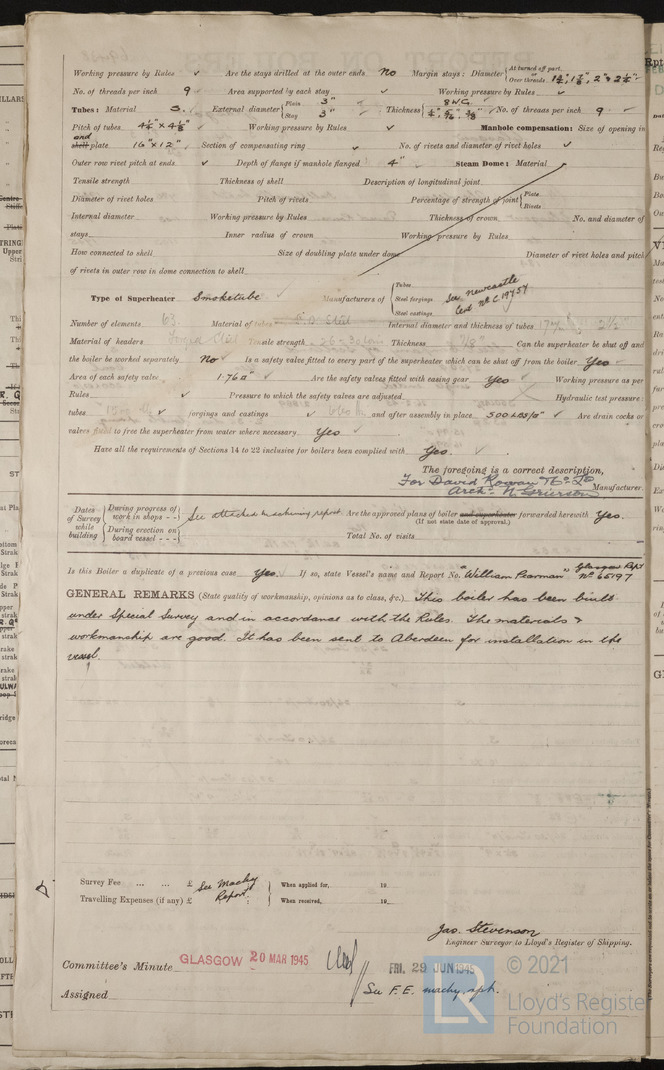 Working pressure by Rules ✓ Are the stays drilled at the outer ends No Margin stays: Diameter { At turned off part, Over threads 1¾", 1⅞", 2" & 2¼"
No. of threads per inch 9 Area supported by each stay ✓ Working pressure by Rules ✓
Tubes: Material S. External diameter { Plain 3" Stay 3" ✓ Thickness { 8 WG. ¼", 5/16", 3/8" ✓ No. of threads per inch 9 ✓
Pitch of tubes 4¼" x 4⅛" Working pressure by Rules ✓ Manhole compensation: Size of opening in
end shell plate 16" x 12" ✓ Section of compensating ring ✓ No. of rivets and diameter of rivet holes ✓
Outer row rivet pitch at ends ✓ Depth of flange if manhole flanged 4" Steam Dome: Material
Tensile strength Thickness of shell Description of longitudinal joint
Diameter of rivet holes Pitch of rivets Percentage of strength of joint { Plate Rivets
Internal diameter Working pressure by Rules Thickness of crown No. and diameter of
stays Inner radius of crown Working pressure by Rules
How connected to shell Size of doubling plate under dome Diameter of rivet holes and pitch
of rivets in outer row in dome connection to shell
Type of Superheater Smoketube Manufacturers of { Tubes Steel forgings Steel castings See Newcastle Cert No C.19457
Number of elements 63 Material of tubes Internal diameter and thickness of tubes
Material of headers Tensile strength Thickness 7/8" Can the superheater be shut off and
the boiler be worked separately No ✓ Is a safety valve fitted to every part of the superheater which can be shut off from the boiler Yes ✓
Area of each safety valve 1.76 □" ✓ Are the safety valves fitted with easing gear Yes ✓ Working pressure as per
Rules ✓ Pressure to which the safety valves are adjusted Hydraulic test pressure:
tubes forgings and castings ✓ and after assembly in place 500 Lbs/□" ✓ Are drain cocks or
valves fitted to free the superheater from water where necessary Yes ✓
Have all the requirements of Sections 14 to 22 inclusive for boilers been complied with Yes.
The foregoing is a correct description,
For David Rowan & Co Ld
Arch. N. Grierson Manufacturer.
Dates of Survey while building { During progress of work in shops - - During erection on board vessel - - - See attached machinery report. Are the approved plans of boiler and superheater forwarded herewith Yes.
(If not state date of approval.)
Total No. of visits
Is this Boiler a duplicate of a previous case Yes. If so, state Vessel's name and Report No. "William Pearman" Glasgow Rpt No 65197
GENERAL REMARKS (State quality of workmanship, opinions as to class, &c.) This boiler has been built
under Special Survey and in accordance with the Rules. The materials &
workmanship are good. It has been sent to Aberdeen for installation in the
vessel.
Survey Fee ... ... £ See Machy Report. When applied for, 19
Travelling Expenses (if any) £ When received, 19
Jas. Stevenson
Engineer Surveyor to Lloyd's Register of Shipping.
Committee's Minute GLASGOW 20 MAR 1945 FRI. 29 JUN 1945
Assigned See F.E. machy. rpt.
© 2021
LR Lloyd's Register
Foundation